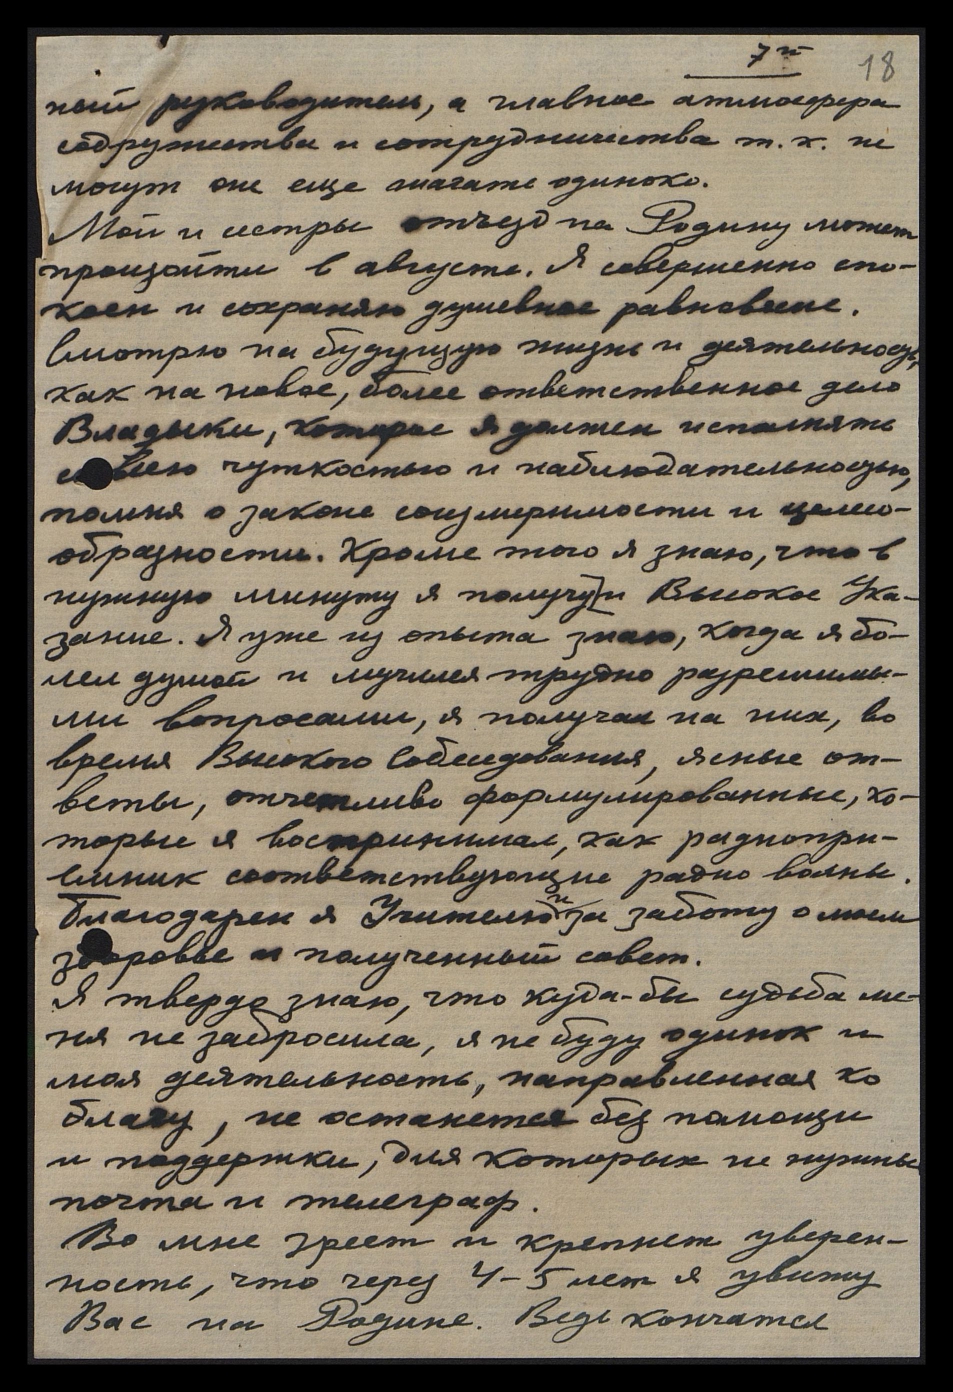 7й 18
ный руководитель, а главное атмосфера
содружества и сотрудничества т.к. не
могут они еще шагать одиноко.
Мой и сестры отъезд на Родину может
произойти в августе. Я совершенно спо-
коен и сохраняю душевное равновесие.
Смотрю на будущую жизнь и деятельность,
как на новое, более ответственное дело
Владыки, которое я должен исполнять
со всею чуткостью и наблюдательностью,
помня о законе соизмеримости и целесо-
образности. Кроме того я знаю, что в
нужную минуту я получу и Высокое Ука-
зание. Я уже из опыта знаю, когда я бо-
лел душой и мучился трудно разрешимы-
ми вопросами, я получал на них, во
время Высокого Собеседования, ясные от-
веты, отчетливо формулированные, ко-
торые я воспринимал, как радиопри-
емник соответствующие радио волны.
Благодарен я Учителю и за заботу о моем
здоровье и полученный совет.
Я твердо знаю, что куда-бы судьба ме-
ня не забросила, я не буду одинок и
моя деятельность, направленная ко
благу, не останется без помощи
и поддержки, для которых не нужны
почта и телеграф.
Во мне зреет и крепнет уверен-
ность, что через 4-5 лет я увижу
Вас на Родине. Ведь кончатся